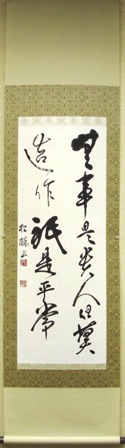 無事是貴人但莫
造作祇是平常